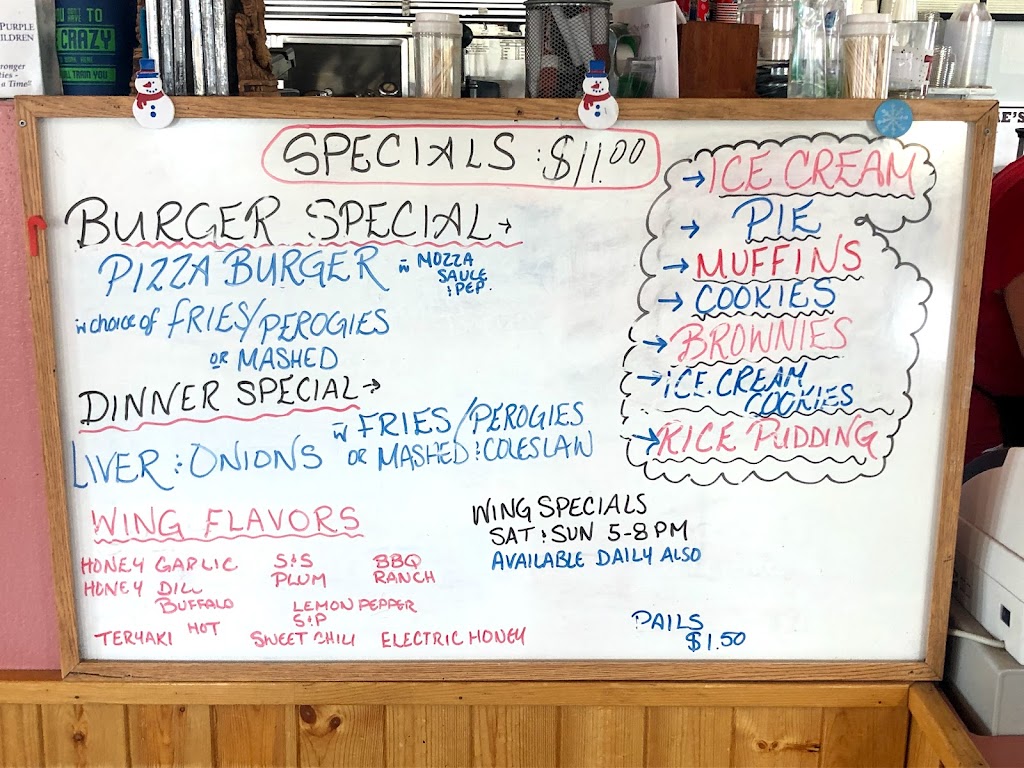 PURPLE
ILDREN
ronger
ties -
a Time!!
TO
CRAZY
WORK HERE
LL TRAIN YOU
SPECIALS : $11.00
BURGER SPECIAL →
PIZZA BURGER w MOZZA
SAUCE
: PEP.
w choice of FRIES/PEROGIES
OR MASHED
DINNER SPECIAL →
LIVER : ONIONS w FRIES/PEROGIES
OR MASHED : COLESLAW
WING FLAVORS
HONEY GARLIC S&S BBQ
HONEY DILL PLUM RANCH
BUFFALO LEMON PEPPER
HOT S&P
TERYAKI SWEET CHILI ELECTRIC HONEY
WING SPECIALS
SAT : SUN 5-8 PM
AVAILABLE DAILY ALSO
PAILS
$1.50
→ ICE CREAM
→ PIE
→ MUFFINS
→ COOKIES
→ BROWNIES
→ ICE CREAM
COOKIES
→ RICE PUDDING
E'S